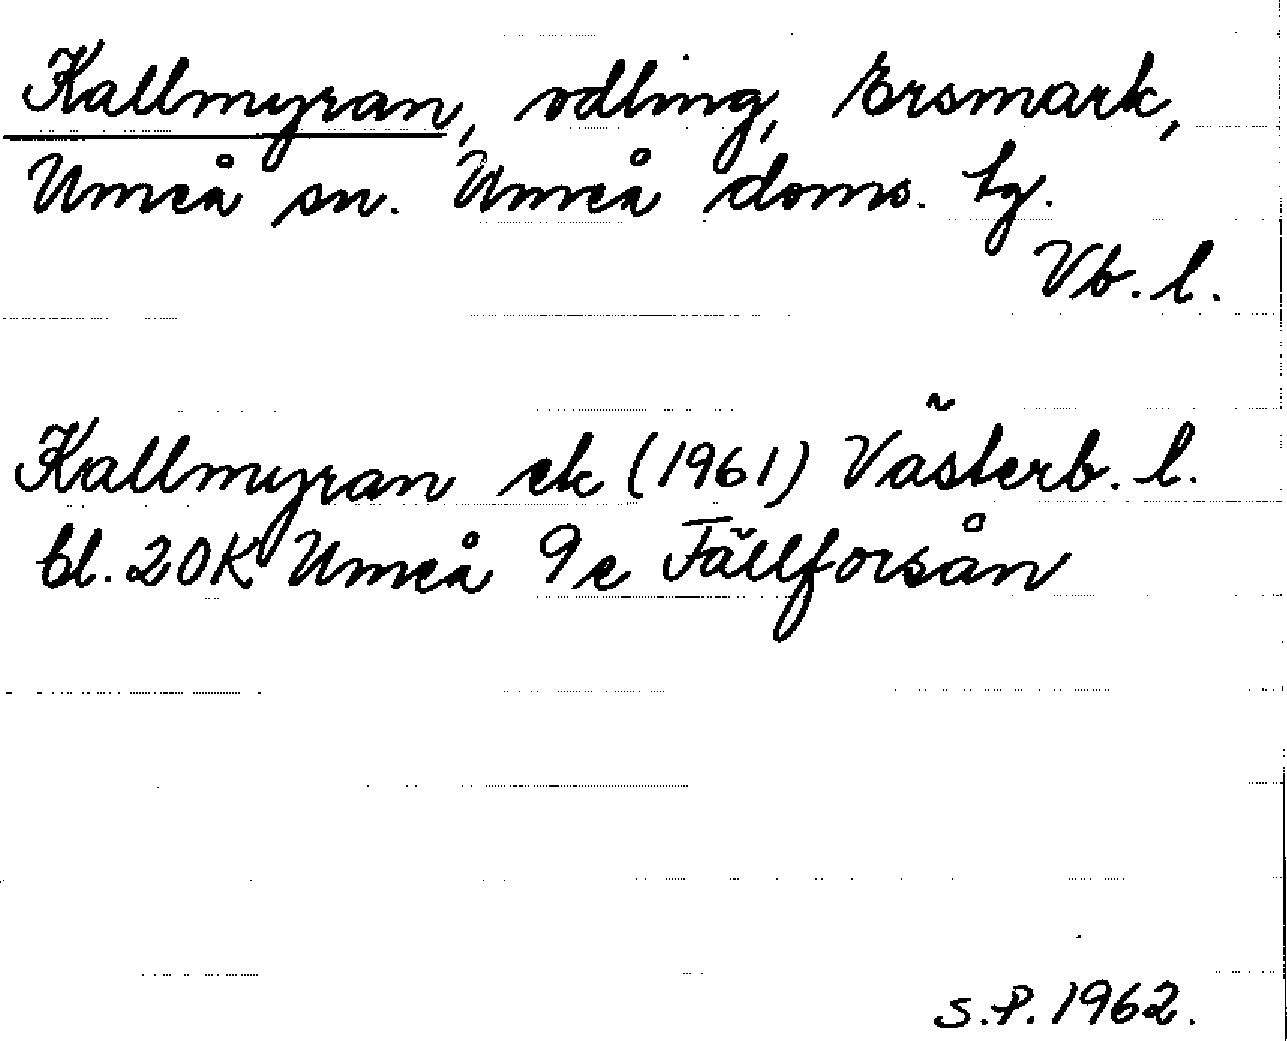 Kallmyran, odling, Ersmark,
Umeå sn. Umeå doms. tg.
Vb. l.
Kallmyran ek (1961) Västerb. l.
bl. 20K Umeå 9e Fällforsån
S.P. 1962.